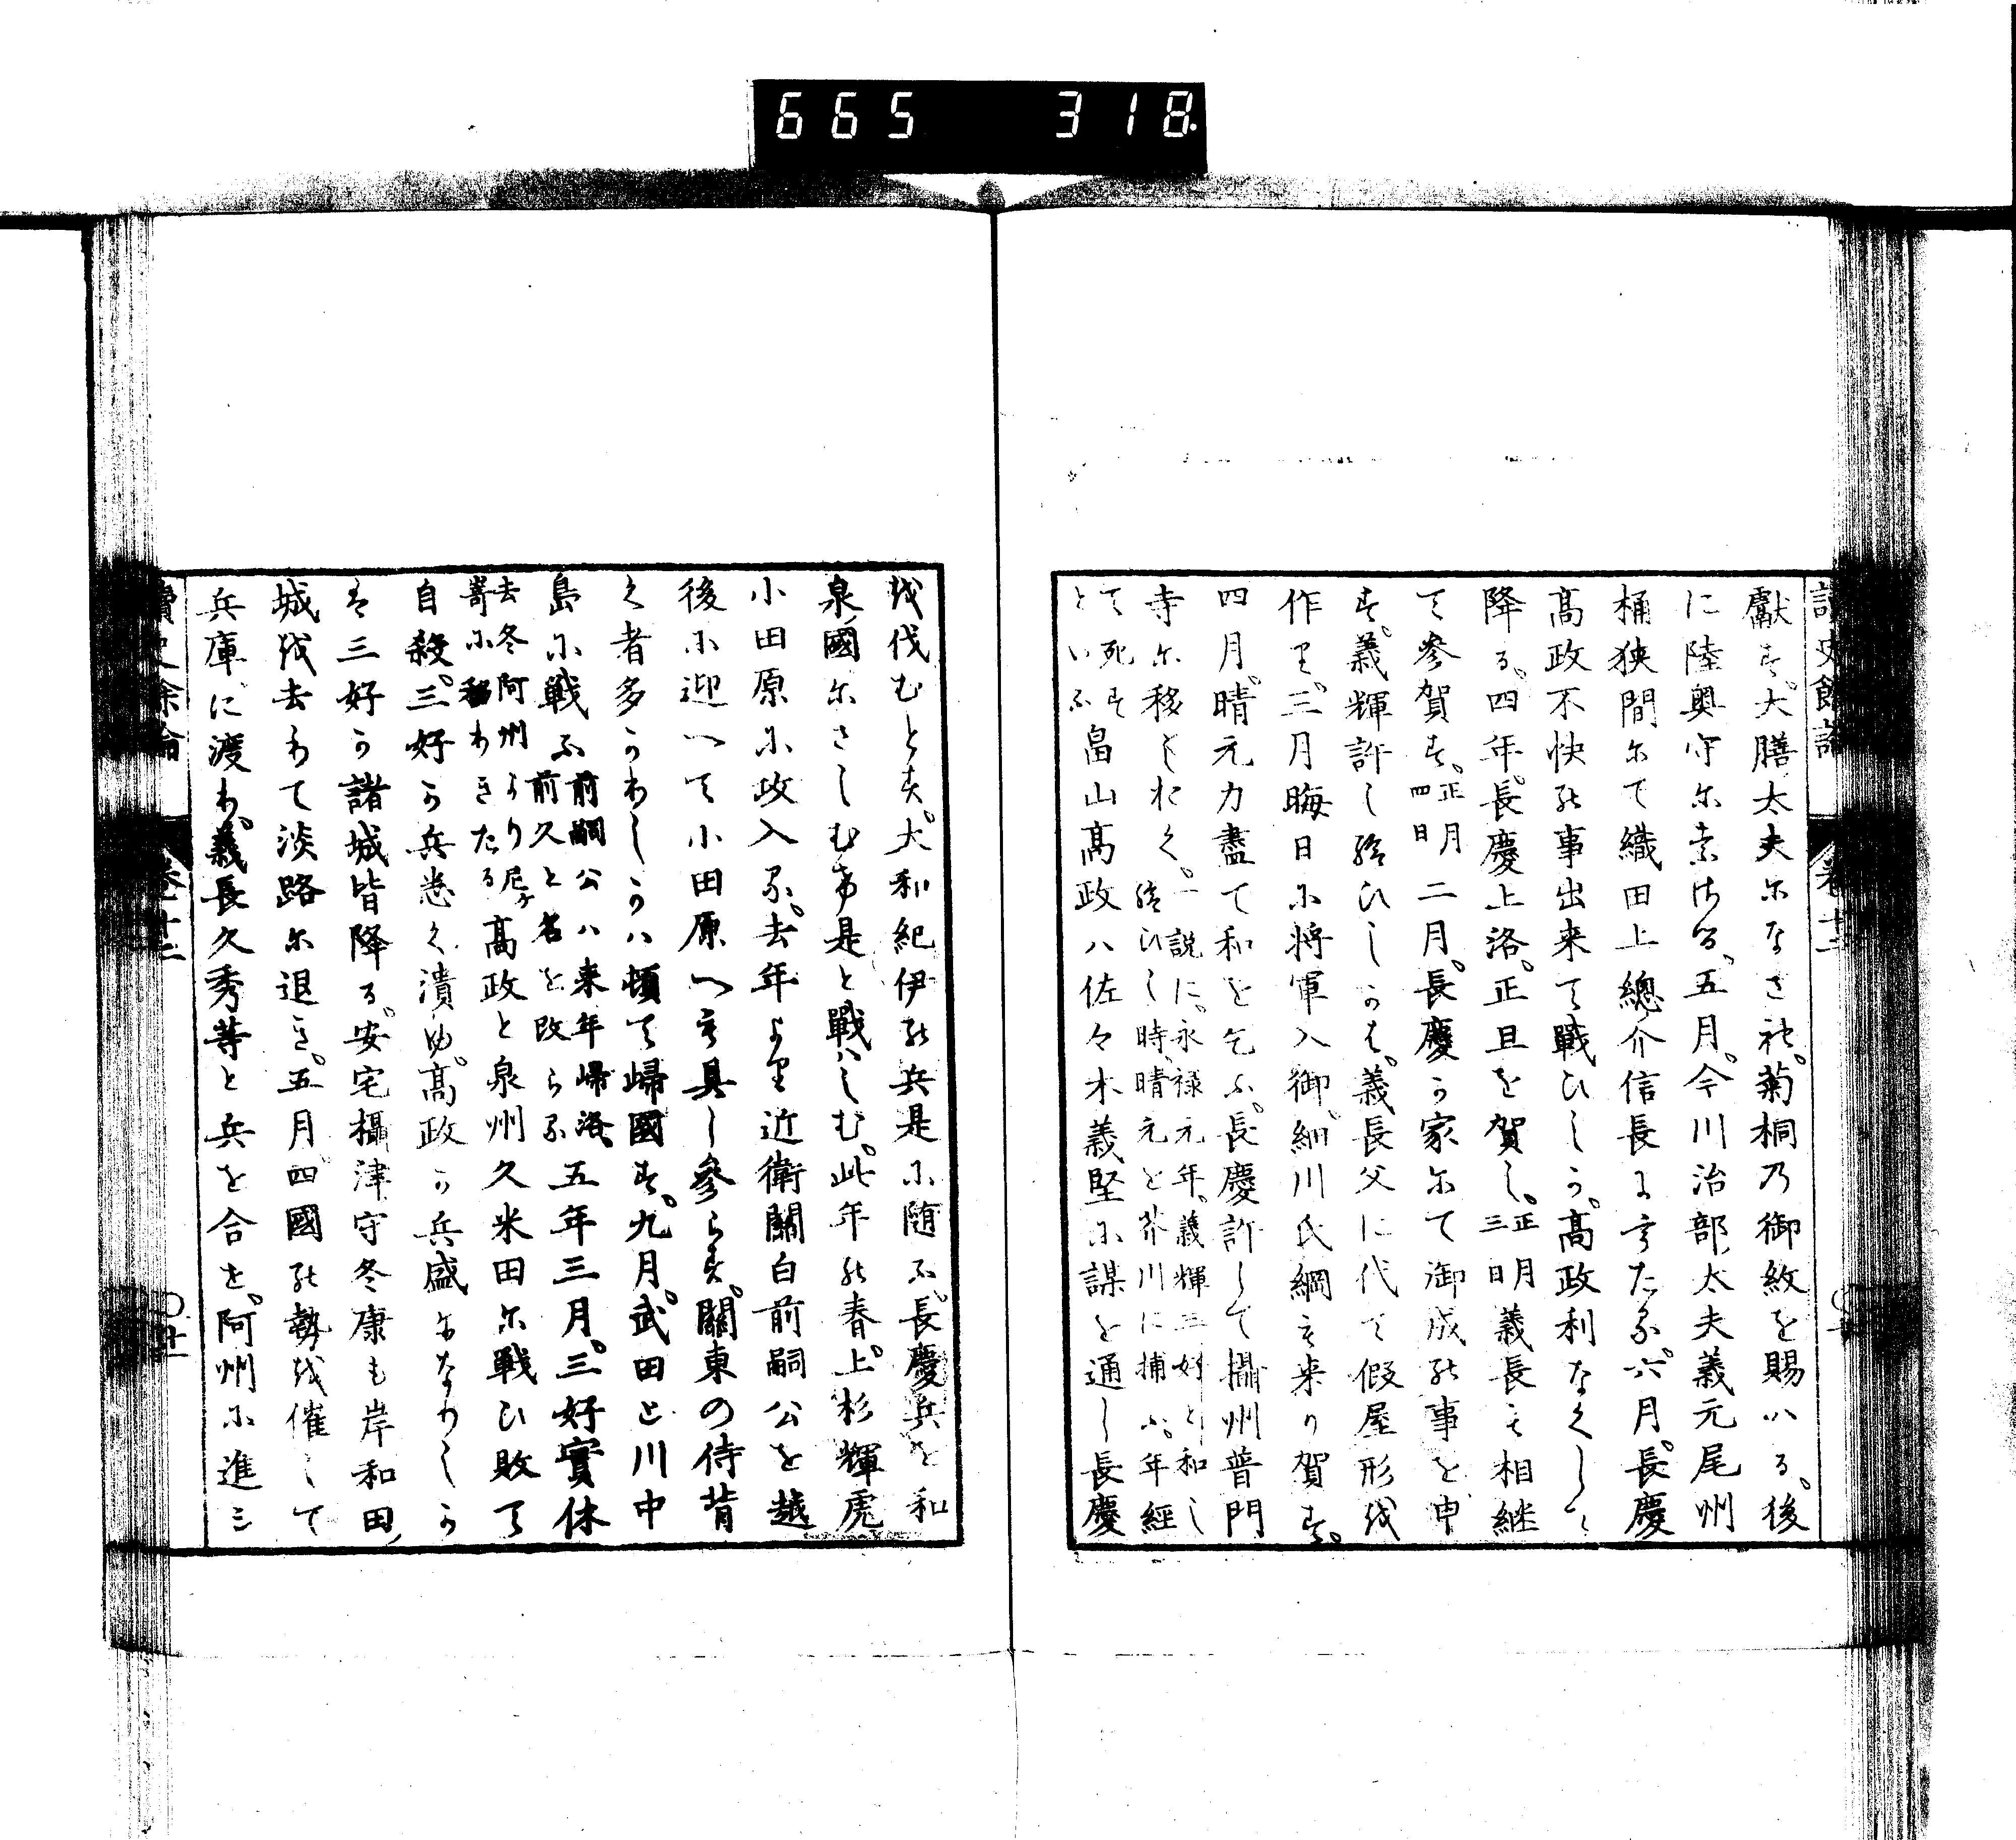 665 318
獻す。大膳太夫になさ礼。菊桐乃御紋を賜ハる。後
に陸奥守に素はる。五月。今川治部太夫義元尾州
桶狭間にて織田上總介信長にうたる。六月。長慶
高政不快の事出来て戦ひしか。高政利なくして
降る。四年。長慶上洛。正旦を賀し。正月三日義長も相継
て參賀す。正月四日二月。長慶か家にて御成の事を申
す。義輝許し給ひしかは。義長父に代て假屋形を
作里。三月晦日に将軍入御。細川氏綱も来り賀す。
四月。晴元力盡て和を乞ふ。長慶許して攝州普門
寺に移しおく。一説に。永禄元年。義輝三好と和し
給ひし時。晴元を芥川に捕ふ。年經
て死す
といふ畠山高政ハ佐々木義堅に謀を通し長慶
を伐むとす。大和紀伊の兵是に随ふ。長慶兵を和
泉國にさしむけ是と戰ハしむ。此年の春。上杉輝虎
小田原に政入る。去年より近衛關白前嗣公を越
後に迎へて小田原へも具し參らす。關東の侍背
く者多かりしかハ頓て歸國す。九月。武田と川中
島に戰ふ前嗣公ハ来年歸洛。
前久と名を改らる五年三月。三好實休
去冬阿州より尼
嵜に移りきたる高政と泉州久米田に戰ひ敗て
自殺。三好か兵悉く潰ゆ。高政か兵盛になりしか
は三好か諸城皆降る。安宅攝津守冬康も岸和田
城を去りて淡路に退き。五月。四國の勢を催して
兵庫に渡り。義長久秀等と兵を合せ。阿州に進ミ
讀史餘論 卷十二